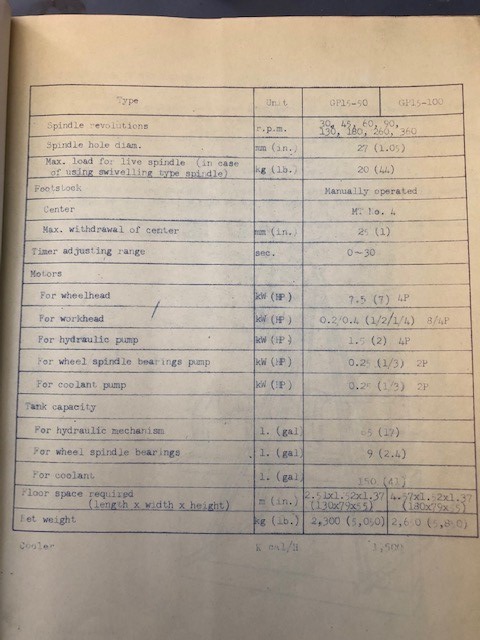 Type Unit GP15-50 GP15-100
Spindle revolutions r.p.m. 30, 45, 60, 90,
130, 180, 260, 360
Spindle hole diam. mm (in.) 27 (1.05)
Max. load for live spindle (in case
of using swivelling type spindle) kg (lb.) 20 (44)
Footstock Manually operated
Center MT No. 4
Max. withdrawal of center mm (in.) 25 (1)
Timer adjusting range sec. 0~30
Motors
For wheelhead kW (HP) 7.5 (7) 4P
For workhead kW (HP) 0.2/0.4 (1/2/1/4) 8/4P
For hydraulic pump kW (HP) 1.5 (2) 4P
For wheel spindle bearings pump kW (HP) 0.25 (1/3) 2P
For coolant pump kW (HP) 0.25 (1/3) 2P
Tank capacity
For hydraulic mechanism l. (gal) (17)
For wheel spindle bearings l. (gal) 9 (2.4)
For coolant l. (gal) 150 (41)
Floor space required
(length x width x height) m (in.) x1.52x1.37 x1.52x1.37
(130x79x55) (180x79x55)
Net weight kg (lb.) 2,300 (5,050)
Cooler 1,500